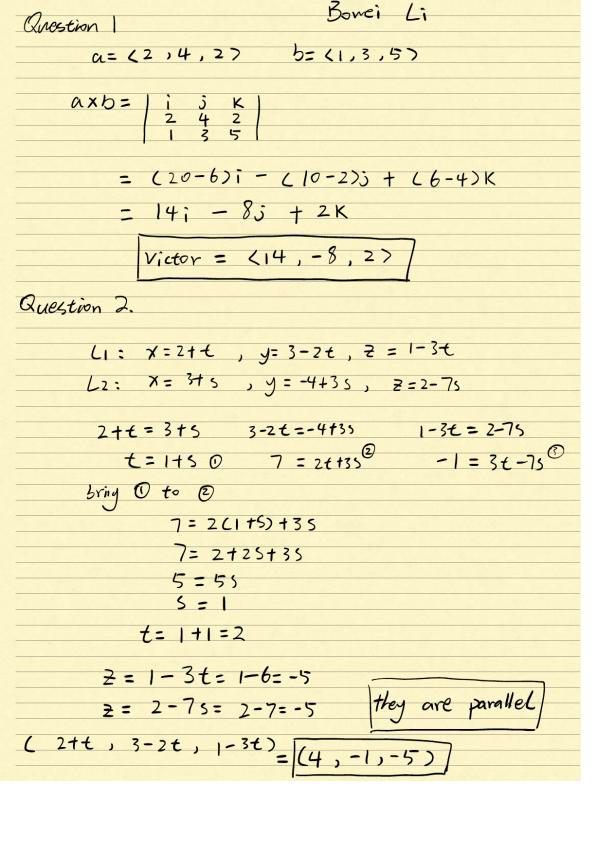 Bowei Li
Question 1
a = <2, 4, 2> b = <1, 3, 5>
a×b = | i j k |
| 2 4 2 |
| 1 3 5 |
= (20-6)i - (10-2)j + (6-4)k
= 14i - 8j + 2k
Victor = <14, -8, 2>
Question 2.
L1: x=2+t, y=3-2t, z=1-3t
L2: x=3+s, y=-4+3s, z=2-7s
2+t=3+s 3-2t=-4+3s 1-3t=2-7s
t=1+s ① 7=2t+3s ② -1=3t-7s ③
bring ① to ②
7=2(1+s)+3s
7=2+2s+3s
5=5s
s=1
t=1+1=2
z=1-3t=1-6=-5
z=2-7s=2-7=-5 they are parallel
(2+t, 3-2t, 1-3t) = (4, -1, -5)